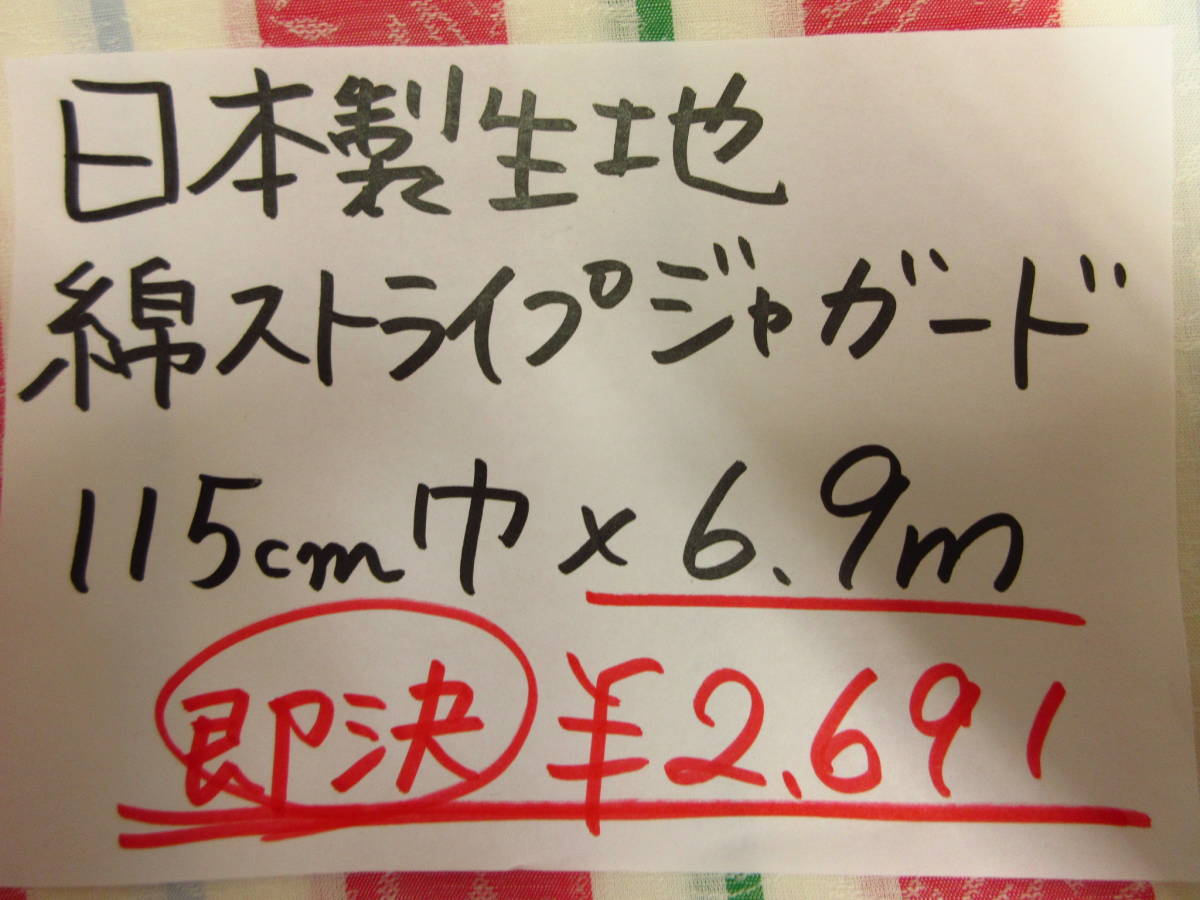 日本製生地
綿ストライプジャガード
115cm巾×6.9m
即決 ¥2.691